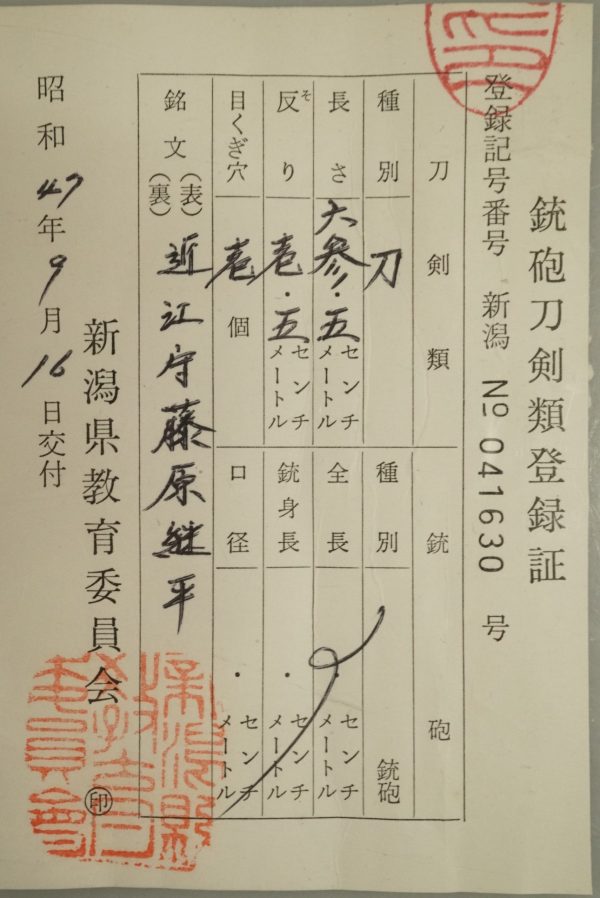 銃砲刀剣類登録証
登録記号番号 新潟 № 041630 号
刀剣類
種別 刀
長さ 六参・五 センチメートル
反り 壱・五 センチメートル
そ
目くぎ穴 壱個
銃砲
種別 銃砲
全長 ・ センチメートル
銃身長 ・ センチメートル
口径 ・ センチメートル
銘文(表)(裏) 近江守藤原継平
昭和47年9月16日交付
新潟県教育委員会 ㊞
新潟県
教育
委員會